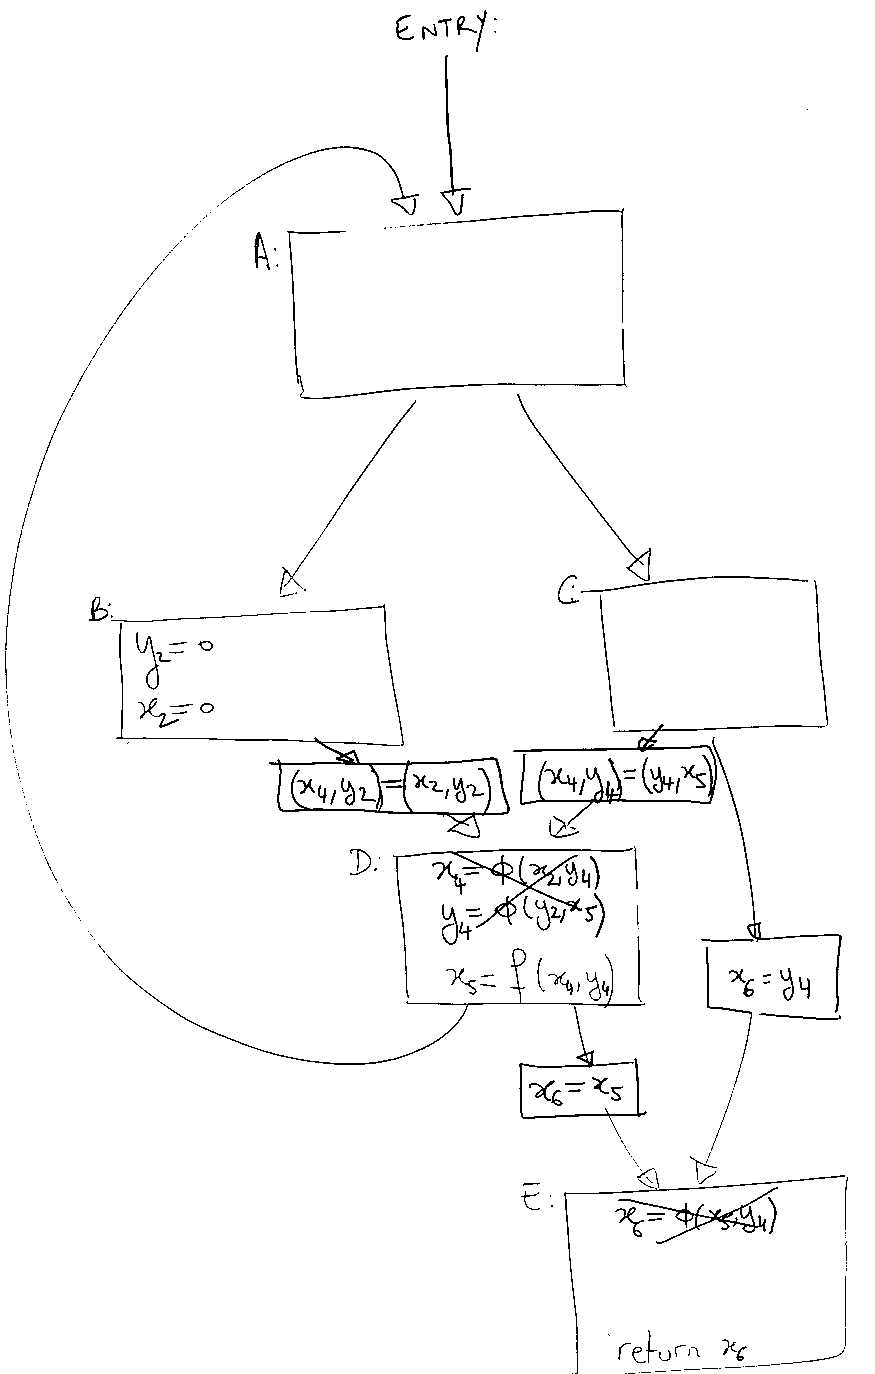 ENTRY:
A:
B:
y₂= 0
x₂= 0
C:
(x₄,y₂)=(x₂,y₂)
(x₄,y₄)=(y₄,x₅)
D:
x₄= ϕ(x₂,y₄)
y₄= ϕ(y₂,x₅)
x₅= f(x₄,y₄)
x₆=y₄
x₆=x₅
E:
x₆= ϕ(x₅,y₄)
return x₆